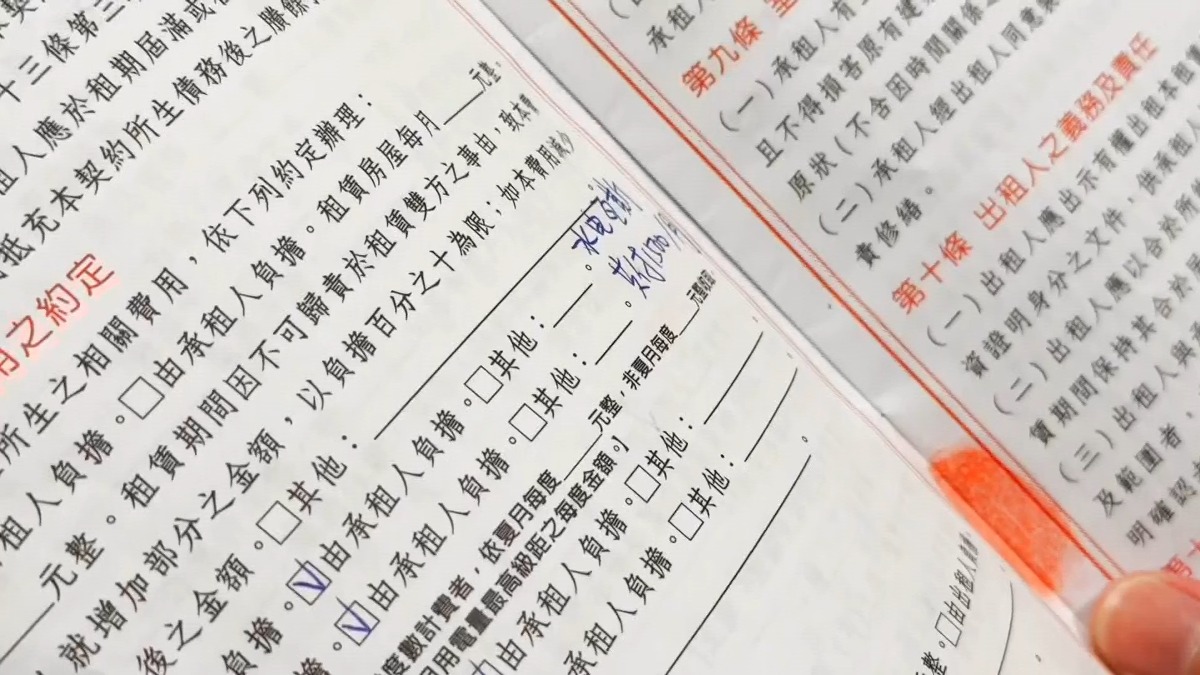 十三條第三
租人應於租期屆滿或
抵充本契約所生債務後之賸餘
用之約定
所生之相關費用，依下列約定辦理：
租人負擔。□由承租人負擔。租賃房屋每月____元整。
____元整。租賃期間因不可歸責於租賃雙方之事由，致本費
就增加部分之金額，以負擔百分之十為限；如本費用減少
後之金額。□其他：____。
負擔。☑由承租人負擔。□其他：____。
擔。☑由承租人負擔。□其他：____。
水電自繳
度數計費者，依夏月每度____元整，非夏月每度____元整
用電量最高級距之每度金額。】
由承租人負擔。□其他：____。
承租人負擔。□其他：____。
整。□由出租人負擔
承租人
第九條
(一)承租人有
且不得損害原有建
原狀(不含因時間關係
(二)承租人經出租人同意
責修繕。
第十條 出租人之義務及責任
(一)出租人應出示有權出租本租
資證明身分之文件，供承租人
(二)出租人應以合於所
賃期間保持其合於
(三)出租人與
及範圍者，
明確認